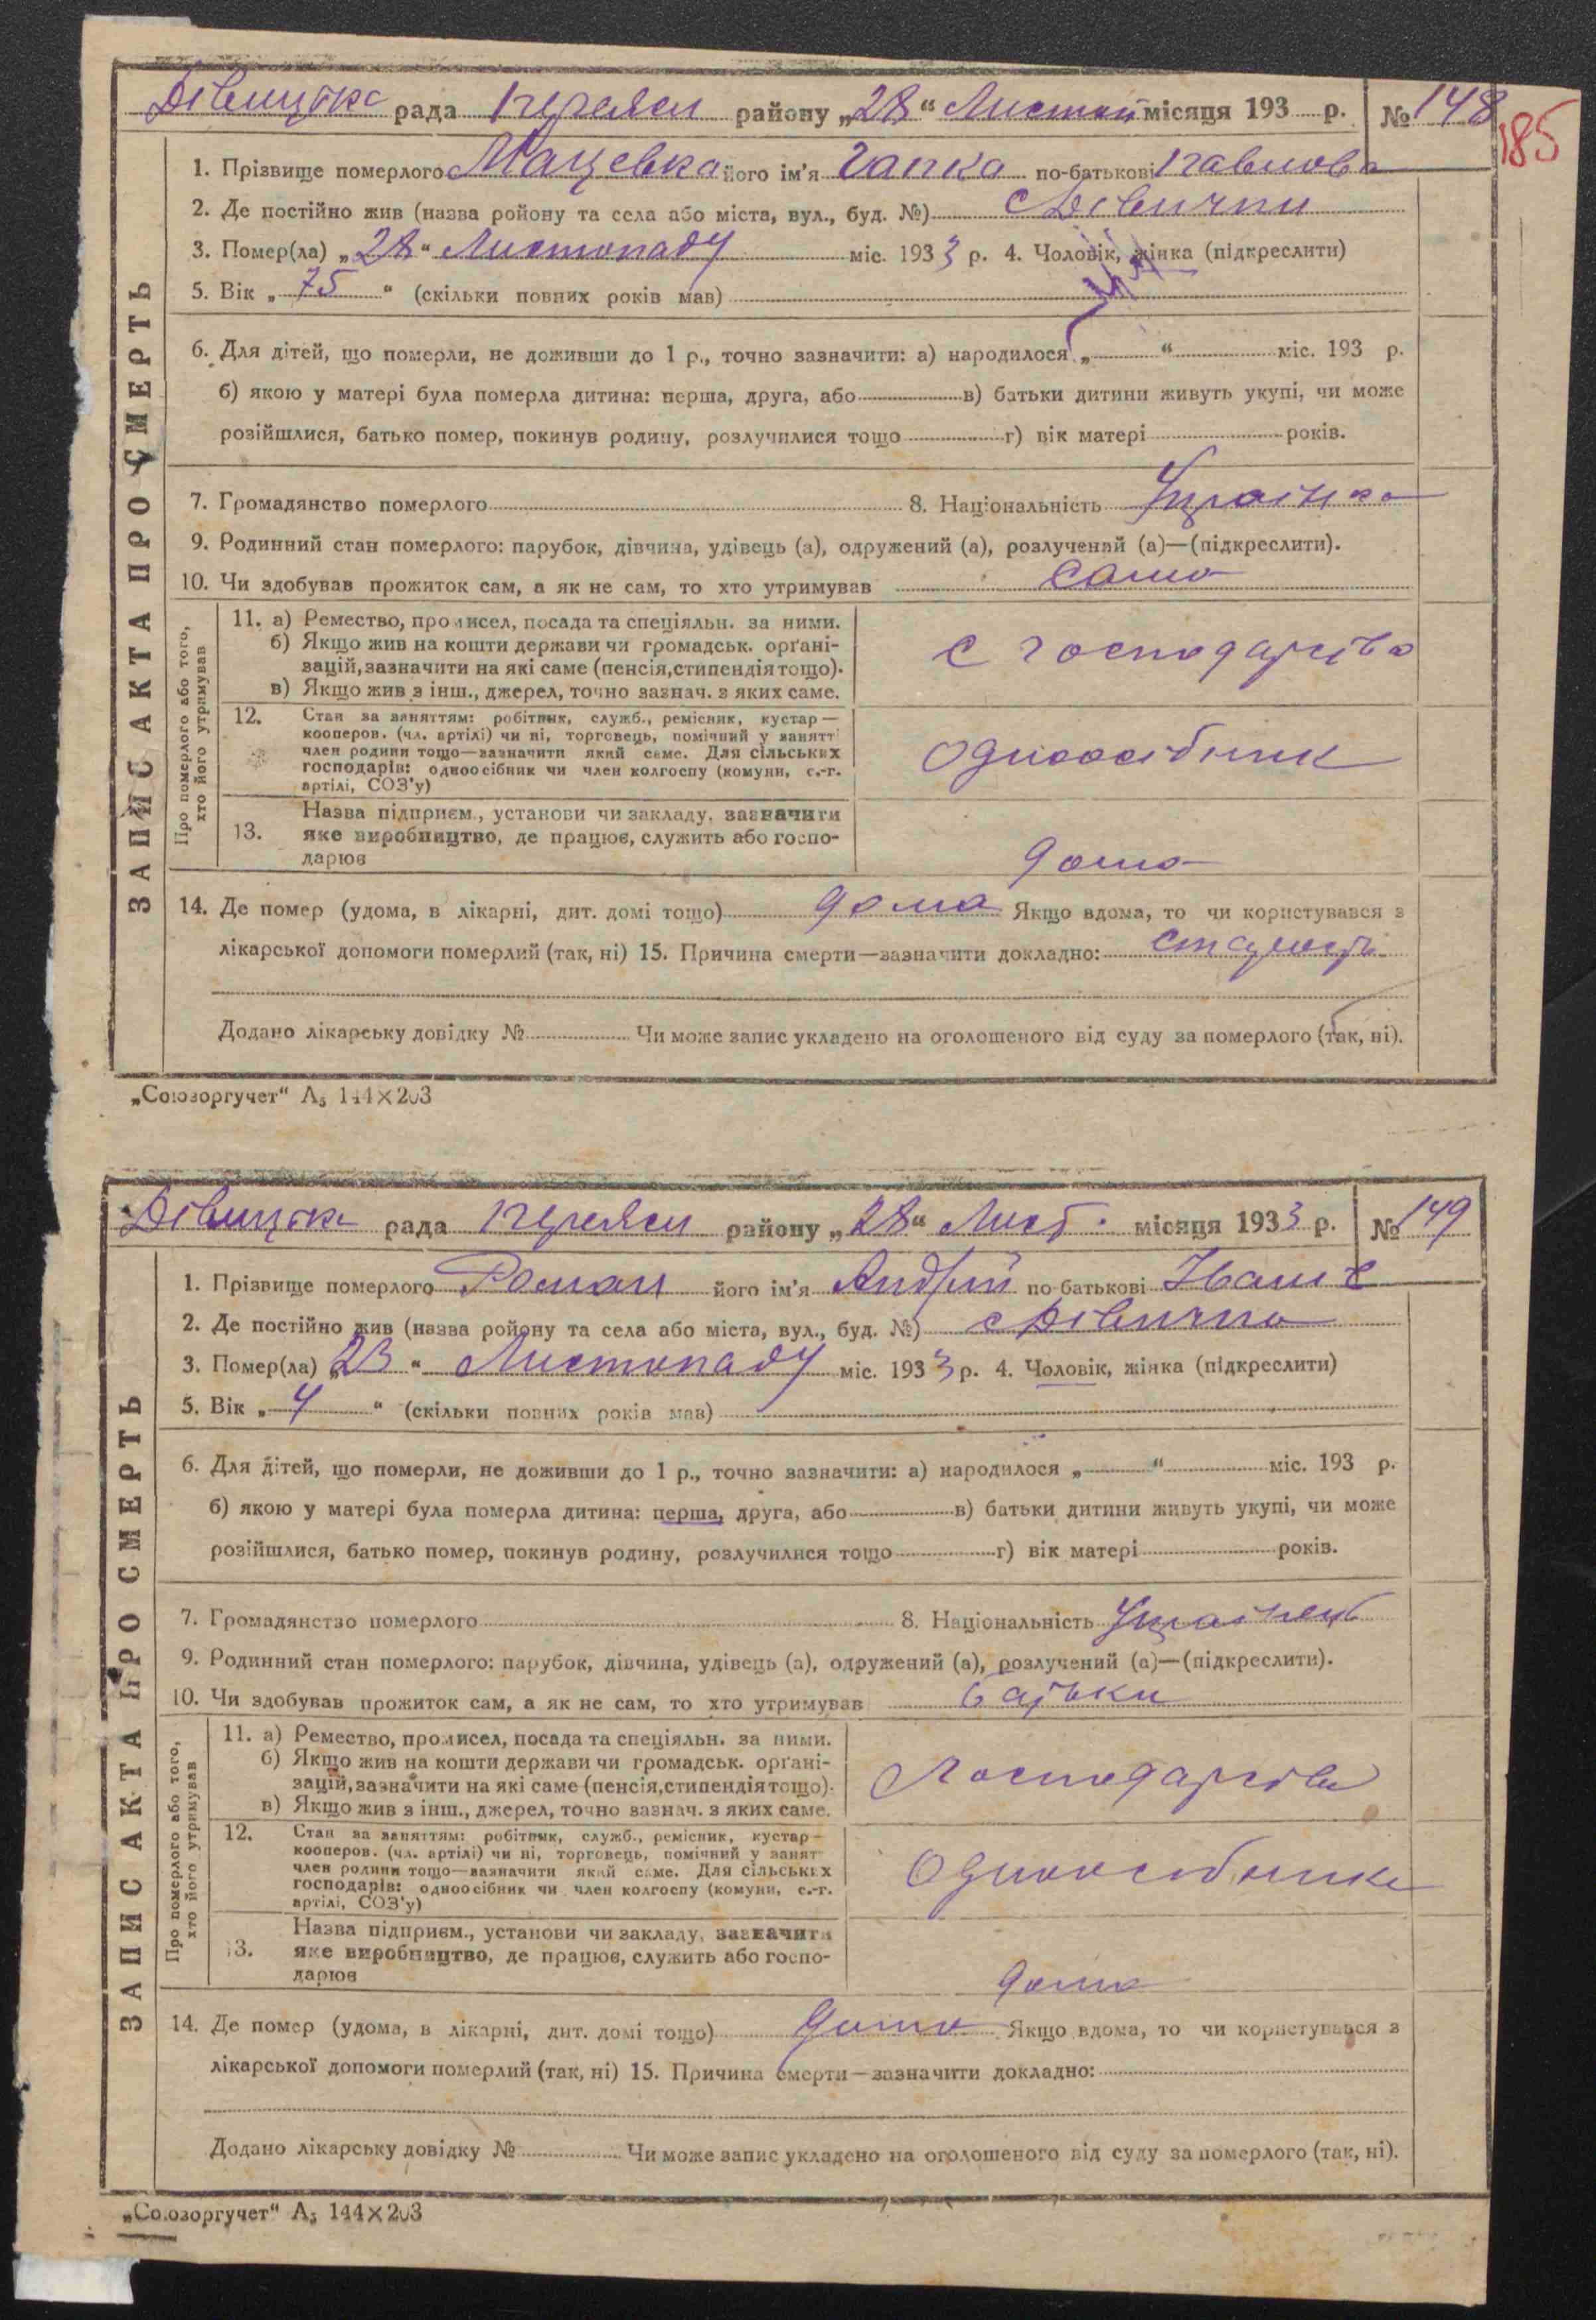 Дівицька рада Переясл району „28“ Листоп місяця 193 р. № 148
185
ЗАПИС АКТА ПРО СМЕРТЬ
1. Прізвище померлого Мацевка його ім'я Гапка по-батькові Павлова
2. Де постійно жив (назва ройону та села або міста, вул., буд. №) с Дівички
3. Помер(ла) „28“ Листопаду міс. 1933 р. 4. Чоловік, жінка (підкреслити)
5. Вік „75“ (скільки повних років мав)
6. Для дітей, що померли, не доживши до 1 р., точно зазначити: а) народилося „ “ міс. 193 р.
б) якою у матері була померла дитина: перша, друга, або в) батьки дитини живуть укупі, чи може
розійшлися, батько помер, покинув родину, розлучилися тощо г) вік матері років.
7. Громадянство померлого 8. Національність Украінка
9. Родинний стан померлого: парубок, дівчина, удівець (а), одружений (а), розлучений (а)—(підкреслити).
10. Чи здобував прожиток сам, а як не сам, то хто утримував сама
Про померлого або того,
хто його утримував
11. а) Ремество, промисел, посада та спеціяльн. за ними.
б) Якщо жив на кошти держави чи громадськ. орґані-
зацій, зазначити на які саме (пенсія, стипендія тощо).
в) Якщо жив з інш., джерел, точно зазнач. з яких саме.
с господарства
12. Стан за заняттям: робітник, служб., ремісник, кустар—
кооперов. (чл. артілі) чи ні, торговець, помічний у занятті
член родини тощо—зазначити який саме. Для сільських
господарів: одноосібник чи член колгоспу (комуни, с.-г.
артілі, СОЗ'у)
одноосібник
13. Назва підприєм., установи чи закладу, зазначити
яке виробництво, де працює, служить або госпо-
дарює
дома
14. Де помер (удома, в лікарні, дит. домі тощо) дома Якщо вдома, то чи користувався з
лікарської допомоги померлий (так, ні) 15. Причина смерти—зазначити докладно: старість
Додано лікарську довідку № Чи може запис укладено на оголошеного від суду за померлого (так, ні).
„Союзоргучет“ А5 144×203
Дівицька рада Переясл району „28“ Лист. місяця 1933 р. № 149
ЗАПИС АКТА ПРО СМЕРТЬ
1. Прізвище померлого Роман його ім'я Андрій по-батькові Іван
2. Де постійно жив (назва ройону та села або міста, вул., буд. №) с Дівички
3. Помер(ла) „23“ Листопаду міс. 1933 р. 4. Чоловік, жінка (підкреслити)
5. Вік „4“ (скільки повних років мав)
6. Для дітей, що померли, не доживши до 1 р., точно зазначити: а) народилося „ “ міс. 193 р.
б) якою у матері була померла дитина: перша, друга, або в) батьки дитини живуть укупі, чи може
розійшлися, батько помер, покинув родину, розлучилися тощо г) вік матері років.
7. Громадянство померлого 8. Національність Украінец
9. Родинний стан померлого: парубок, дівчина, удівець (а), одружений (а), розлучений (а)—(підкреслити).
10. Чи здобував прожиток сам, а як не сам, то хто утримував батьки
Про померлого або того,
хто його утримував
11. а) Ремество, промисел, посада та спеціяльн. за ними.
б) Якщо жив на кошти держави чи громадськ. орґані-
зацій, зазначити на які саме (пенсія, стипендія тощо).
в) Якщо жив з інш., джерел, точно зазнач. з яких саме.
господарства
12. Стан за заняттям: робітник, служб., ремісник, кустар—
кооперов. (чл. артілі) чи ні, торговець, помічний у занят
член родини тощо—зазначити який саме. Для сільських
господарів: одноосібник чи член колгоспу (комуни, с.-г.
артілі, СОЗ'у)
одноосібники
13. Назва підприєм., установи чи закладу, зазначити
яке виробництво, де працює, служить або госпо-
дарює
дома
14. Де помер (удома, в лікарні, дит. домі тощо) дома Якщо вдома, то чи користувався з
лікарської допомоги померлий (так, ні) 15. Причина смерти—зазначити докладно:
Додано лікарську довідку № Чи може запис укладено на оголошеного від суду за померлого (так, ні).
„Союзоргучет“ А5 144×203